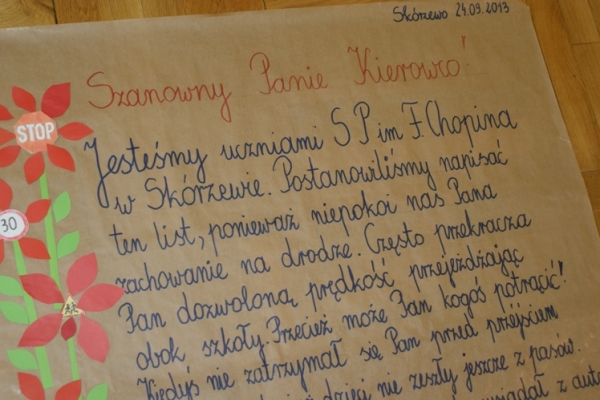 Skórzewo 24.09.2013
Szanowny Panie Kierowco!
Jesteśmy uczniami SP im F. Chopina
w Skórzewie. Postanowiliśmy napisać
ten list, ponieważ niepokoi nas Pana
zachowanie na drodze. Często przekracza
Pan dozwoloną prędkość przejeżdżając
obok szkoły. Przecież może Pan kogoś potrącić!
Kiedyś nie zatrzymał się Pan przed przejściem
dzieci nie zeszły jeszcze z pasów.
z auta
STOP
30